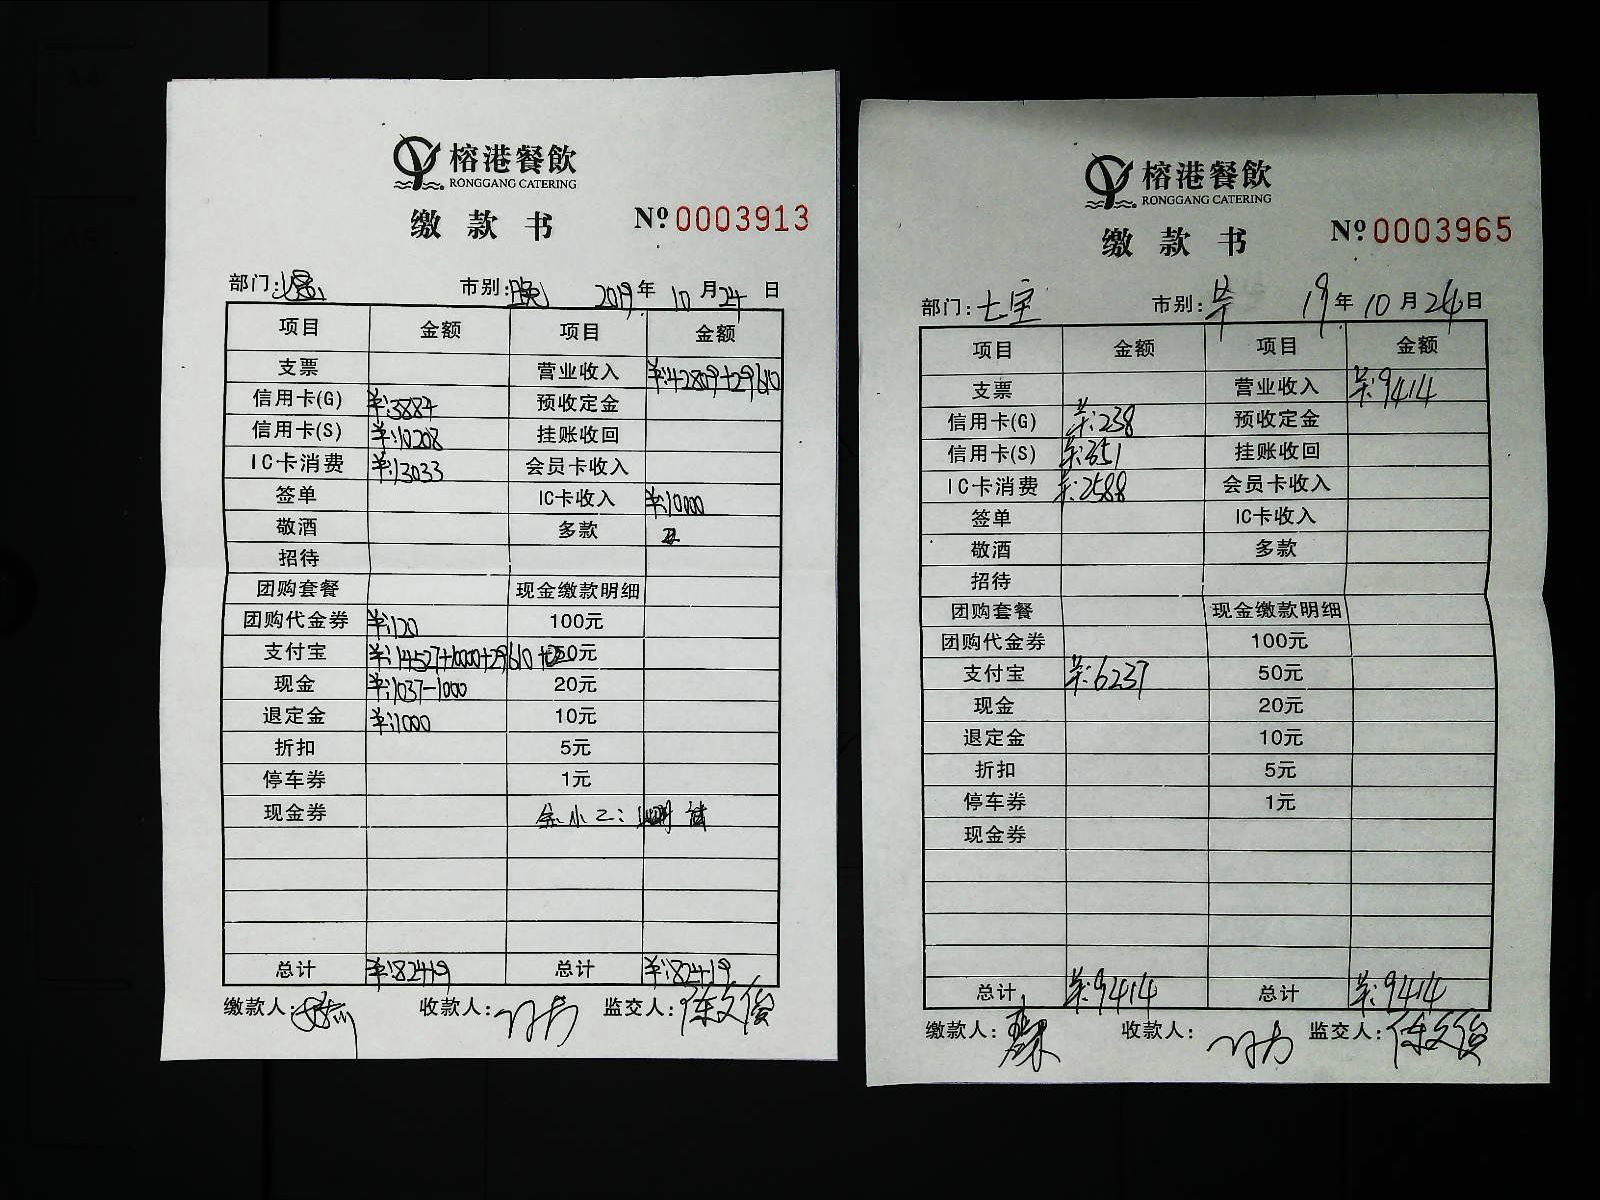 榕港餐飲
RONGGANG CATERING
缴款书 № 0003913
部门: 市别:晚 2019年10月24日
项目 金额 项目 金额
支票 营业收入 ¥:42809+29610
信用卡(G) ¥:3884 预收定金
信用卡(S) ¥:10208 挂账收回
IC卡消费 ¥:13033 会员卡收入
签单 IC卡收入 ¥:10000
敬酒 多款
招待
团购套餐 现金缴款明细
团购代金券 ¥:120 100元
支付宝 ¥:14527+10000+29610 50元
现金 ¥:1037-1000 20元
退定金 ¥:1000 10元
折扣 5元
停车券 1元
现金券
总计 ¥:82419 总计 ¥:82419
缴款人: 收款人: 监交人:徐文俊
榕港餐飲
RONGGANG CATERING
缴款书 № 0003965
部门:七宝 市别: 19年10月24日
项目 金额 项目 金额
支票 营业收入 ¥:9414
信用卡(G) ¥:238 预收定金
信用卡(S) ¥:351 挂账收回
IC卡消费 ¥:2588 会员卡收入
签单 IC卡收入
敬酒 多款
招待
团购套餐 现金缴款明细
团购代金券 100元
支付宝 ¥:6237 50元
现金 20元
退定金 10元
折扣 5元
停车券 1元
现金券
总计 ¥:9414 总计 ¥:9414
缴款人: 收款人: 监交人:徐文俊